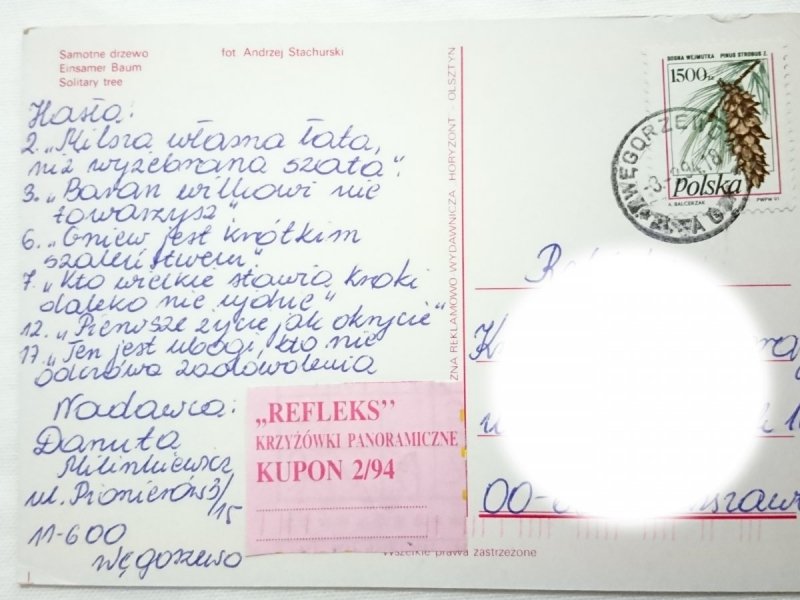 Samotne drzewo
Einsamer Baum
Solitary tree
fot. Andrzej Stachurski
Hasła:
2. „Milsza własna łata,
niż wyżebrana szata".
3. „Baran wilkowi nie
towarzysz"
6. „Gniew jest krótkim
szaleństwem".
7. „Kto wielkie stawia kroki
daleko nie ujdzie"
12. „Pierwsze życie jak okrycie"
17. „Ten jest ubogi, kto nie
odczuwa zadowolenia
Nadawca:
Danuta
Milinkiewicz
ul. Pionierów 3/
15
11-600
Węgorzewo
„REFLEKS"
KRZYŻÓWKI PANORAMICZNE
KUPON 2/94
ZNA REKLAMOWO WYDAWNICZA HORYZONT - OLSZTYN
SOSNA WEJMUTKA PINUS STROBUS L.
1500 zł
Polska
A. BALCERZAK PWPW 91
WĘGORZEWO
00-
Wszelkie prawa zastrzeżone